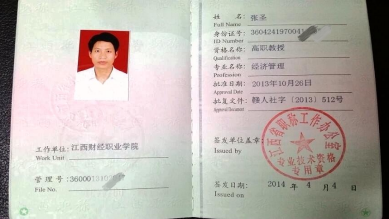 工作单位：江西财经职业学院
Work Unit
管理号：360001
File No.
姓名：张圣
Name
身份证号：3604241970041
ID Number
资格名称：高职教授
Qualification
专业名称：经济管理
Profession
批准日期：2013年10月26日
Approval Date
批复文号：赣人社字〔2013〕512号
Approval Document
签发单位盖章：
Issued by
江西省职称工作办公室
专业技术资格
专用章
签发日期：2014年4月4日
Issued on